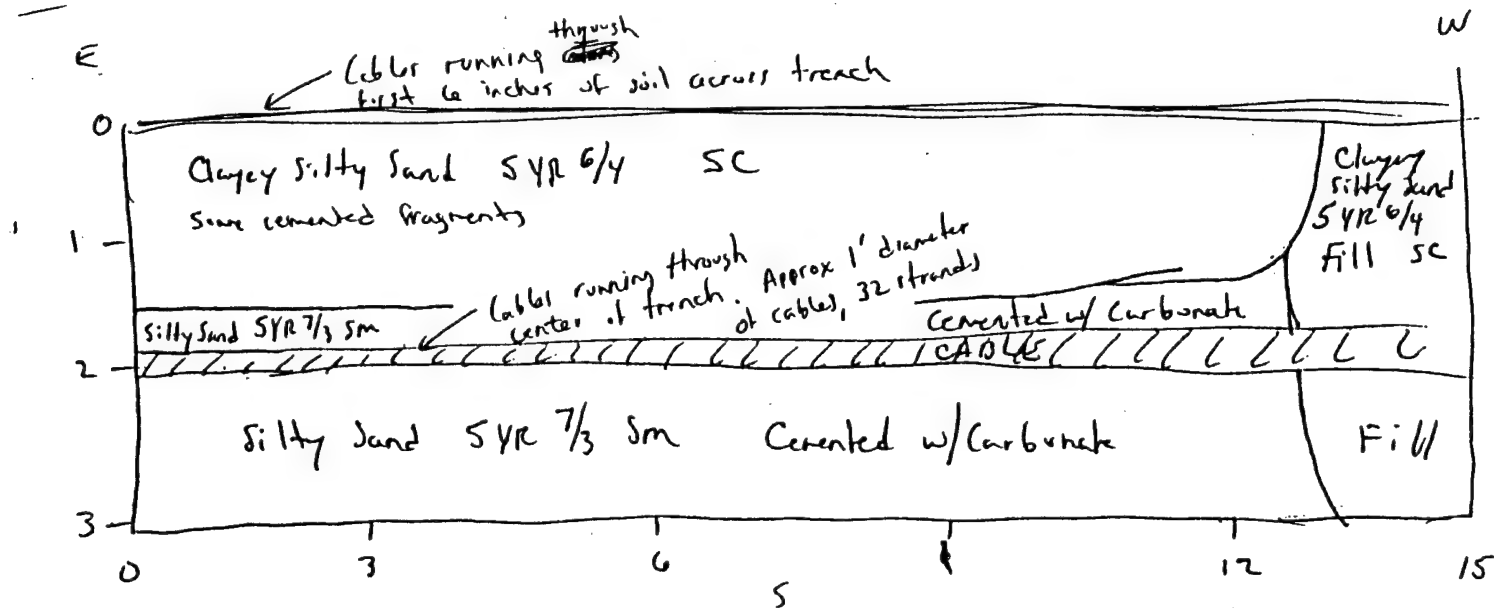 E
W
Cables running through
first 6 inches of soil across trench
0
Clayey Silty Sand 5 YR 6/4 SC
Some cemented fragments
Clayey
silty sand
5 YR 6/4
Fill SC
1
Cables running through
center of trench. Approx 1' diameter
of cables, 32 strands
Silty Sand 5YR 7/3 Sm
Cemented w/ Carbonate
CABLE
2
Silty Sand 5 YR 7/3 Sm Cemented w/ Carbonate
Fill
3
0 3 6 12 15
S